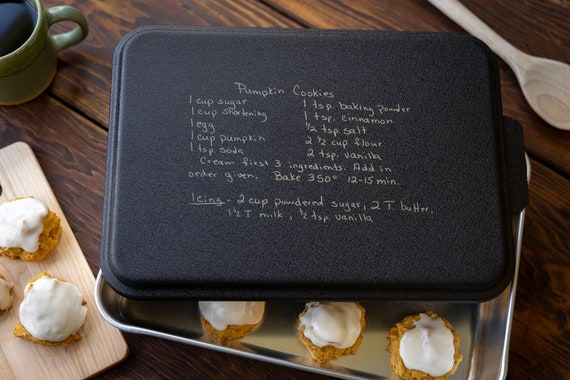 Pumpkin Cookies
1 cup sugar
1 cup shortening
1 egg
1 cup pumpkin
1 tsp. soda
1 tsp. baking powder
1 tsp. cinnamon
1/2 tsp. salt
2 1/2 cup flour
2 tsp. vanilla
Cream first 3 ingredients. Add in
order given. Bake 350° 12-15 min.
Icing - 2 cup powdered sugar, 2 T. butter,
1 1/2 T. milk, 1/2 tsp. vanilla